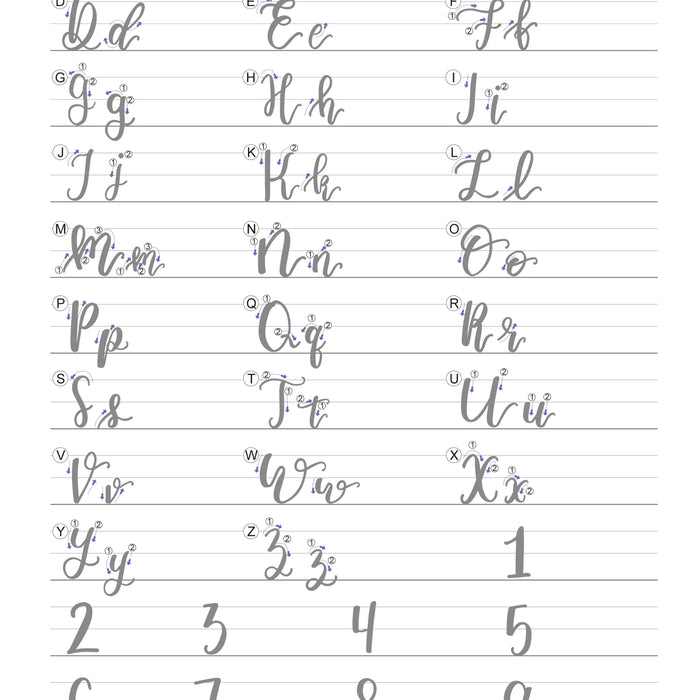 D D d E E e F F f
G G g H H h I I i
J J j K K k L L l
M M m N N n O O o
P P p Q Q q R R r
S S s T T t U U u
V V v W W w X X x
Y Y y Z Z z 1
2 3 4 5
6 7 8 9